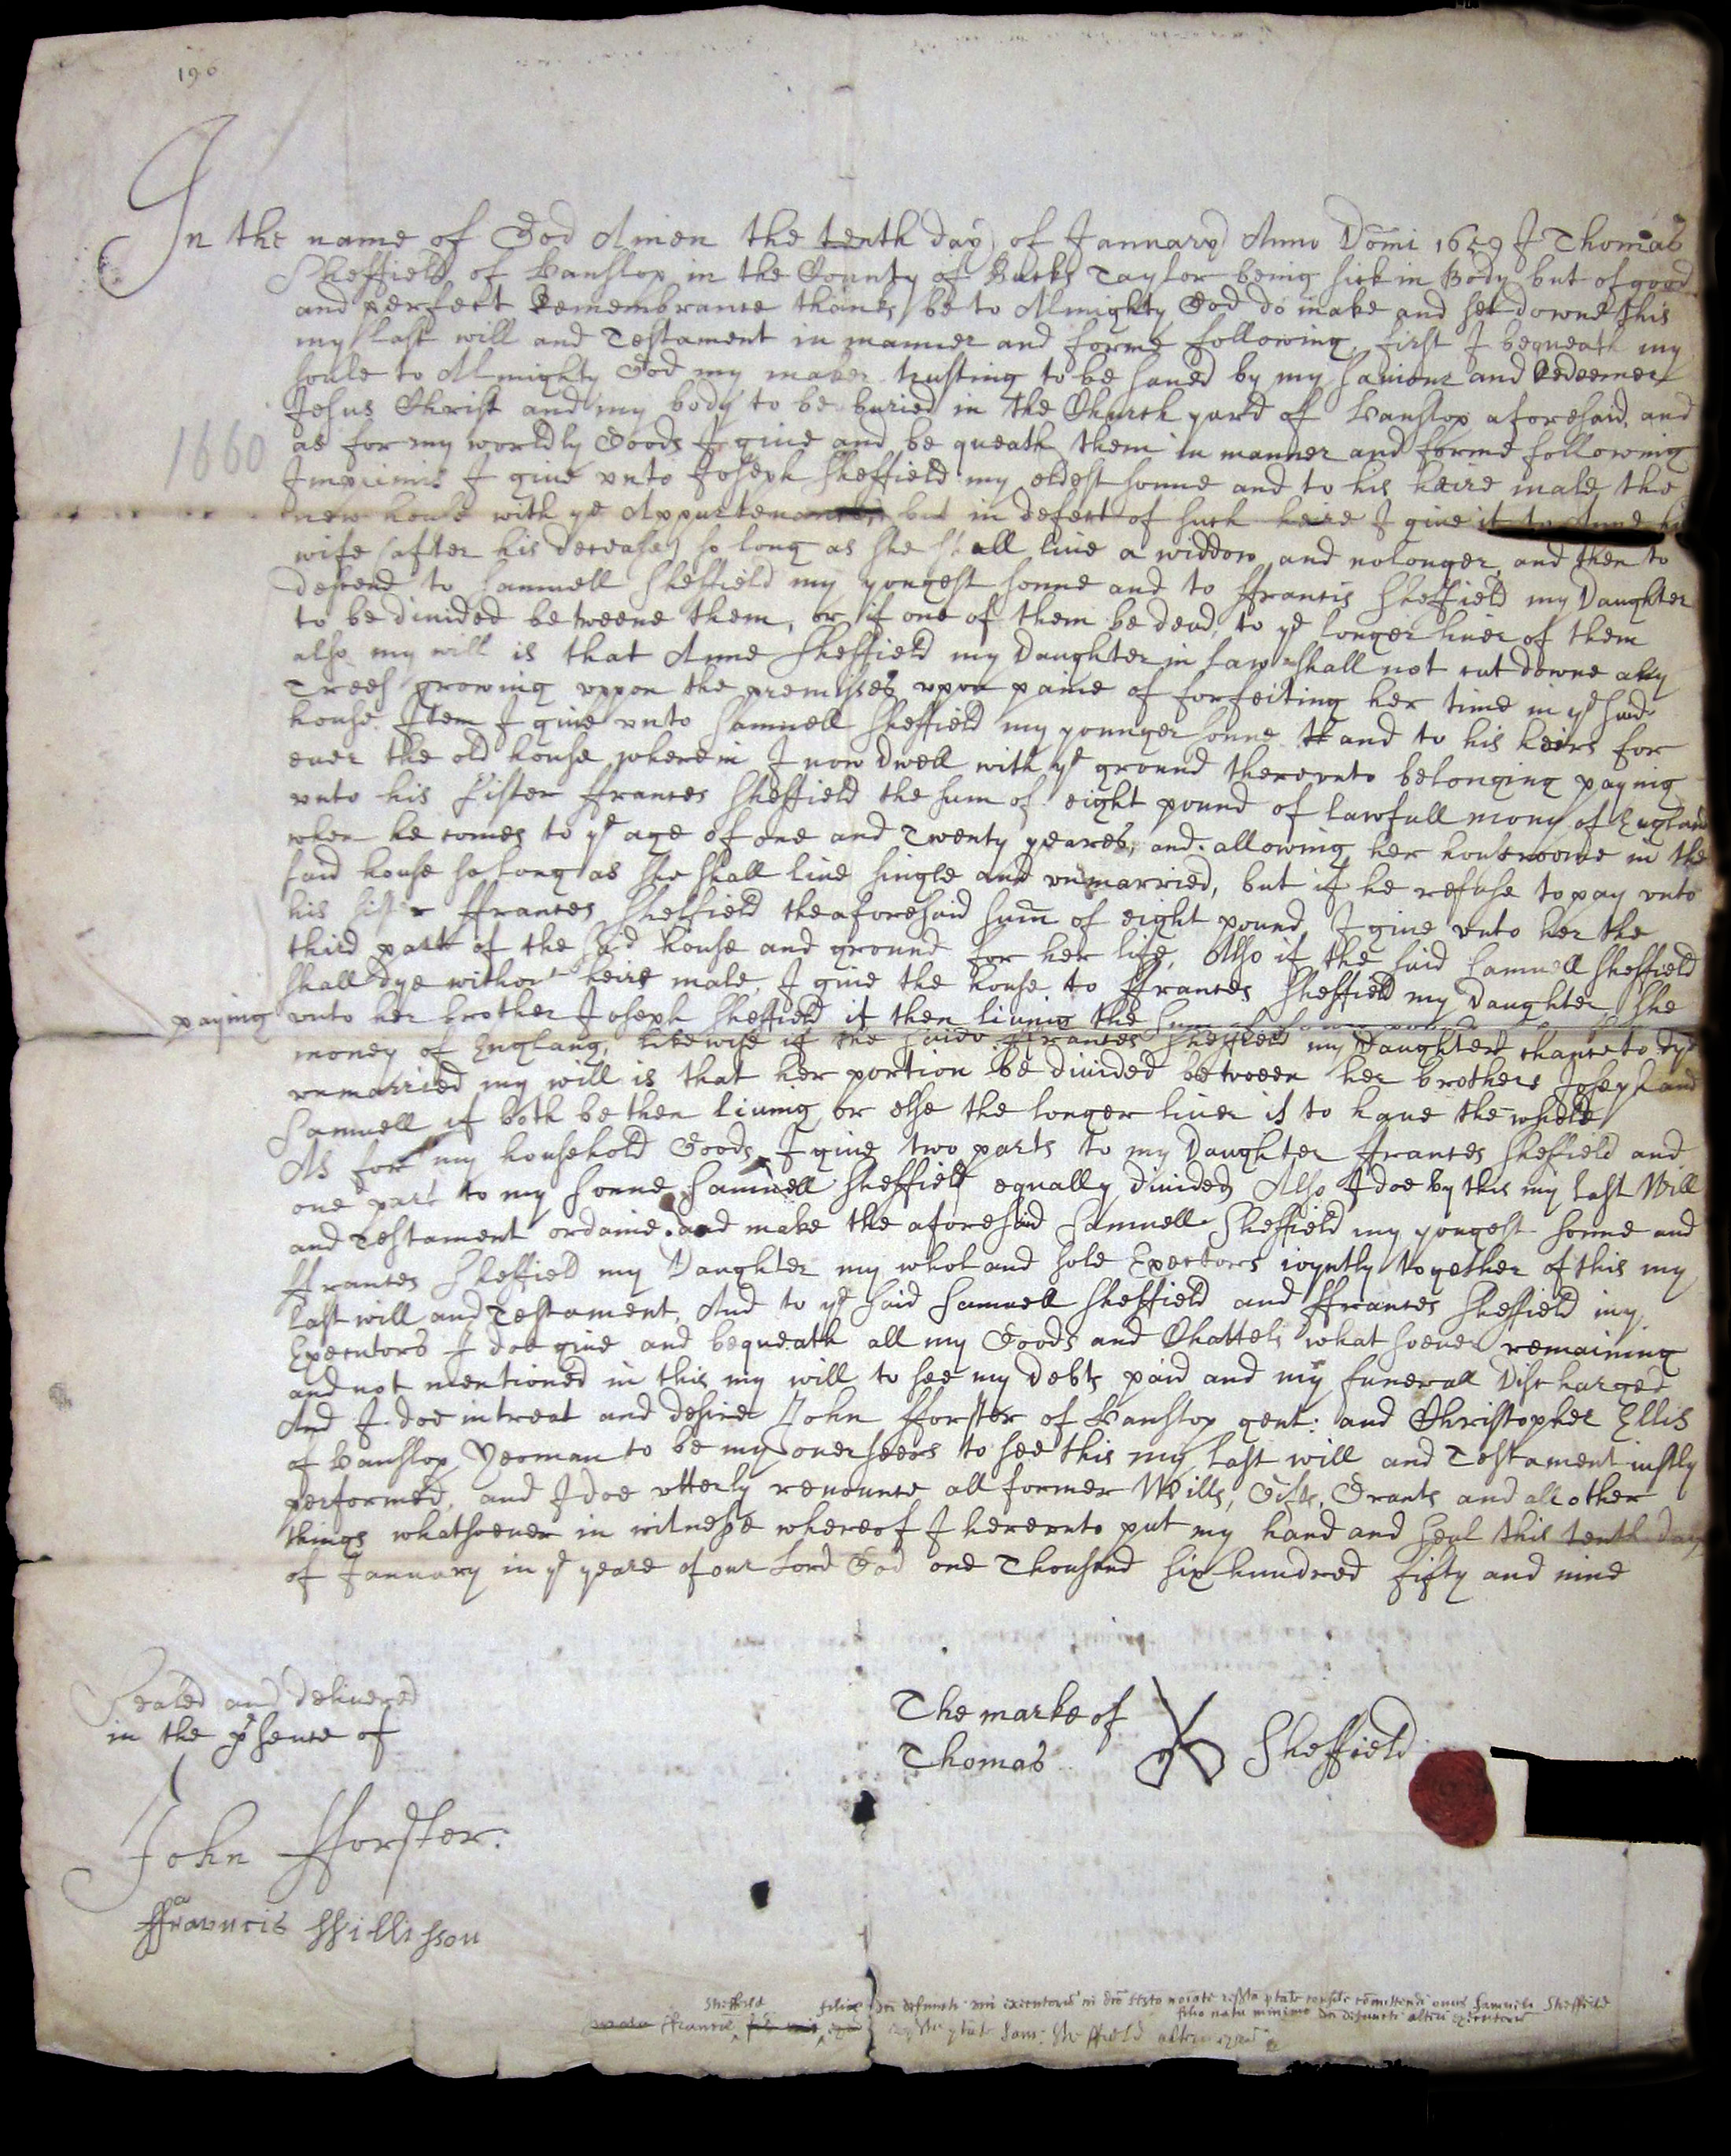 196
In the name of God Amen the tenth day of January Anno Domi 1659 I Thomas
Sheffield of Hanslop in the County of Bucks Taylor being sick in Body but of good
and perfect Remembrance thankes be to Almighty God do make and set downe this
my last will and Testament in manner and forme following, first I bequeath my
soule to Almighty God my maker trusting to be saued by my Sauiour and Redeemer
Jesus Christ and my body to be buried in the Church yard of Hanslop aforesaid, and
1660
as for my worldly Goods I giue and be queath them in manner and forme following
Imprimis I giue vnto Joseph Sheffield my oldest sonne and to his heire male the
new house with ye Appurtenances, but in defect of such heire I giue it to Anne his
wife (after his decease) so long as she shall liue a widdow and no longer, and then to
descend to Samuell Sheffield my yongest sonne and to ffrancis Sheffield my Daughter
to be diuided betweene them, or if one of them be dead, to ye longer liuer of them
also my will is that Anne Sheffield my Daughter in law shall not cut downe any
Trees growing vppon the premisses vpon paine of forfeiting her time in ye said
house. Item I giue vnto Samuell Sheffield my younger sonne and to his heirs for
euer the old house wherein I now dwell with ye ground therevnto belonging paying
vnto his sister ffrances Sheffield the sum of eight pound of lawfull mony of England
when he comes to ye age of one and Twenty yeares, and allowing her houseroome in the
said house so long as she shall liue single and vnmarried, but if he refuse to pay vnto
his sister ffrances Sheffield the aforesaid sum of eight pound I giue vnto her the
third part of the said house and ground for her life, Also if the said Samuell Sheffield
shall dye without heire male, I giue the house to ffrances Sheffield my Daughter, she
paying vnto her brother Joseph Sheffield if then liuing the Sum of
money of England, likewise if the saide ffrances Sheffield my Daughter chance to dye
vnmarried my will is that her portion be diuided betweene her brothers Joseph and
Samuell if both be then liuing or else the longer liuer is to haue the whole
As for my household Goods I giue two parts to my Daughter ffrances Sheffield and
one part to my sonne Samuell Sheffield equally diuided Also I doe by this my last Will
and Testament ordaine and make the aforesaid Samuell Sheffield my yongest sonne and
ffrances Sheffield my Daughter my whol and sole Exectors ioyntly together of this my
last will and Testament, And to ye said Samuell Sheffield and ffrances Sheffield my
Executors I doe giue and bequeath all my Goods and Chattels what soeuer remaining
and not mentioned in this my will to see my debts paid and my funerall Discharged
And I doe intreat and desire John fforster of Hanslop gent: and Christopher Ellis
of Hanslop Yeoman to be my ouerseers to see this my last will and Testament iustly
performed, and I doe vtterly renounce all former Wills, Gifts, Grants and all other
things whatsoeuer in witnesse whereof I herevnto put my hand and seal this tenth day
of January in ye yeare of our Lord God one Thousand six hundred fifty and nine
Sealed and deliuered
in the psence of
The marke of
Thomas Sheffield
John fforster.
ffrancis Willisson
Sheffield
Samuele Sheffield
filio natu minimo
Sam: Sheffield